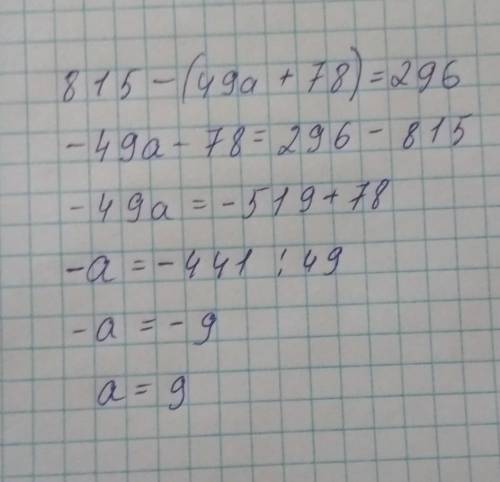 815 - (49a + 78) = 296
-49a - 78 = 296 - 815
-49a = -519 + 78
-a = -441 : 49
-a = -9
a = 9